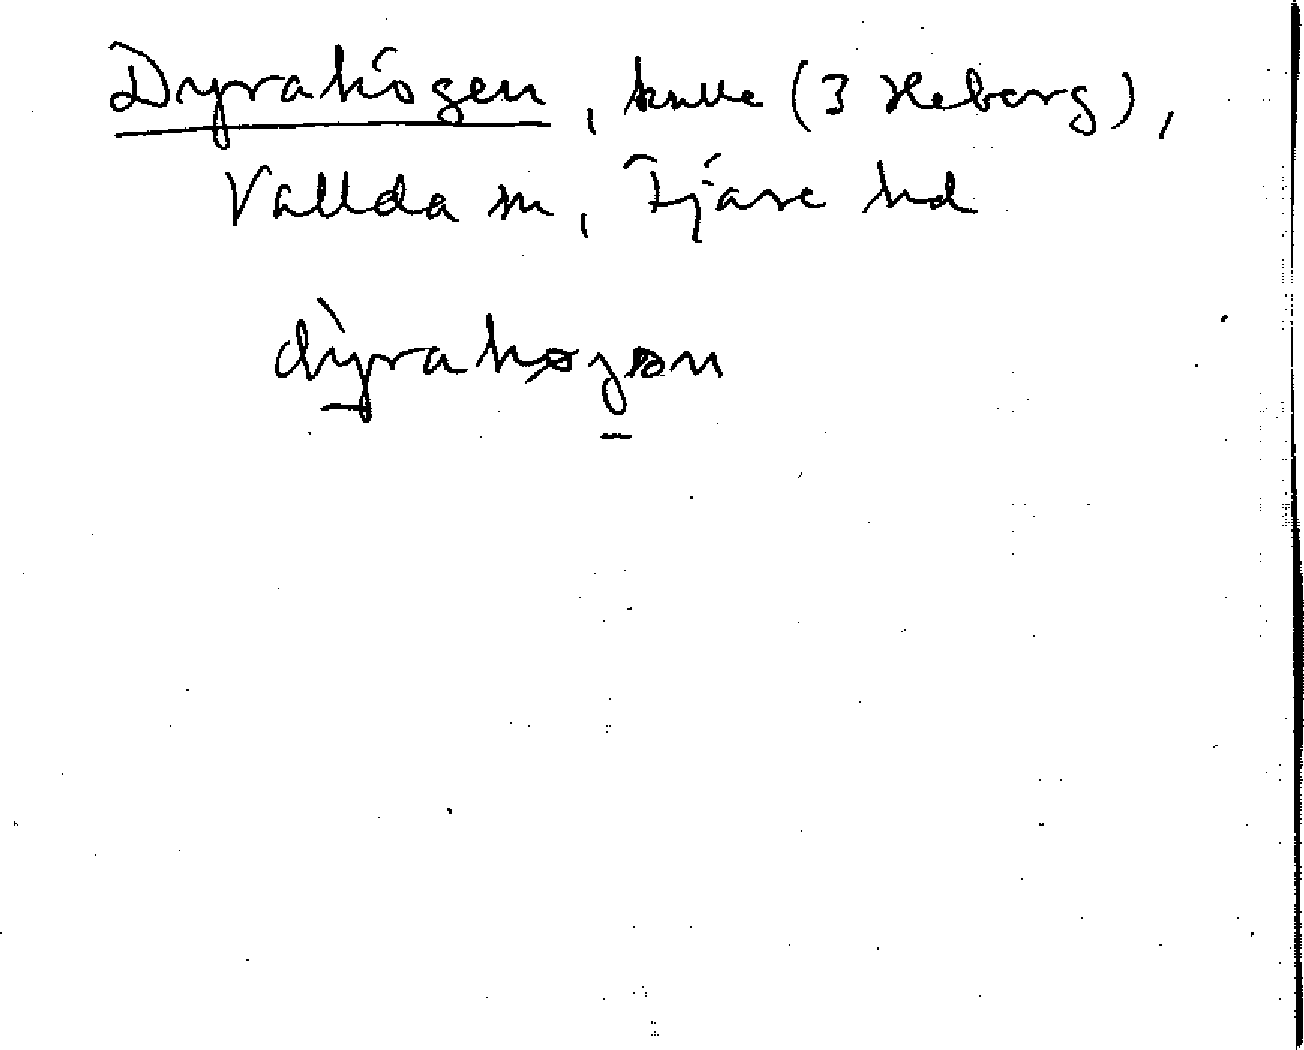 Dyrahögen, kulle (3 Heberg),
Vallda sn, Fjäre hd
dỳrahøgən